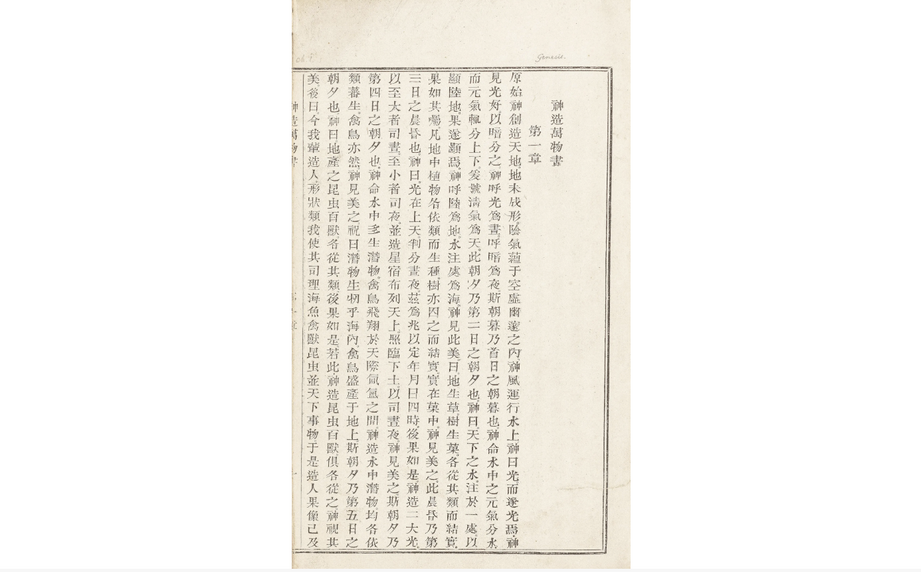 Genesis.
神造萬物書
第一章
原始神創造天地地未成形陰氣蘊于空虛爾邃之內神風運行水上神曰光而遂光焉神
見光好以暗分之神呼光為晝呼暗為夜斯朝暮乃首日之朝暮也神命水中之元氣分水
而元氣輒分上下爰號淸氣為天此朝夕乃第二日之朝夕也神曰天下之水注於一處以
顯陸地果遂顯焉神呼陸為地水注處為海神見此美曰地生草樹生菓各從其類而結實
果如其囑凡地中植物各依類而生種樹亦因之而結實實在菓中神見美之此晨昏乃第
三日之晨昏也神曰光在上天判分晝夜茲為兆以定年月日四時後果如是神造二大光
以至大者司晝至小者司夜並造星宿布列天上照臨下土以司晝夜神見美之斯朝夕乃
第四日之朝夕也神命水中多生潛物禽鳥飛翔於天際氤氳之間神造水中潛物均各依
類蕃生禽鳥亦然神見美之祝曰潛物生牣乎海內禽鳥盛產于地上斯朝夕乃第五日之
朝夕也神曰地產之昆虫百獸各從其類後果如是若此神造昆虫百獸俱各從之神視其
美後曰今我輩造人形狀類我使其司理海魚禽獸昆虫並天下事物于是造人果像己及
神造萬物書